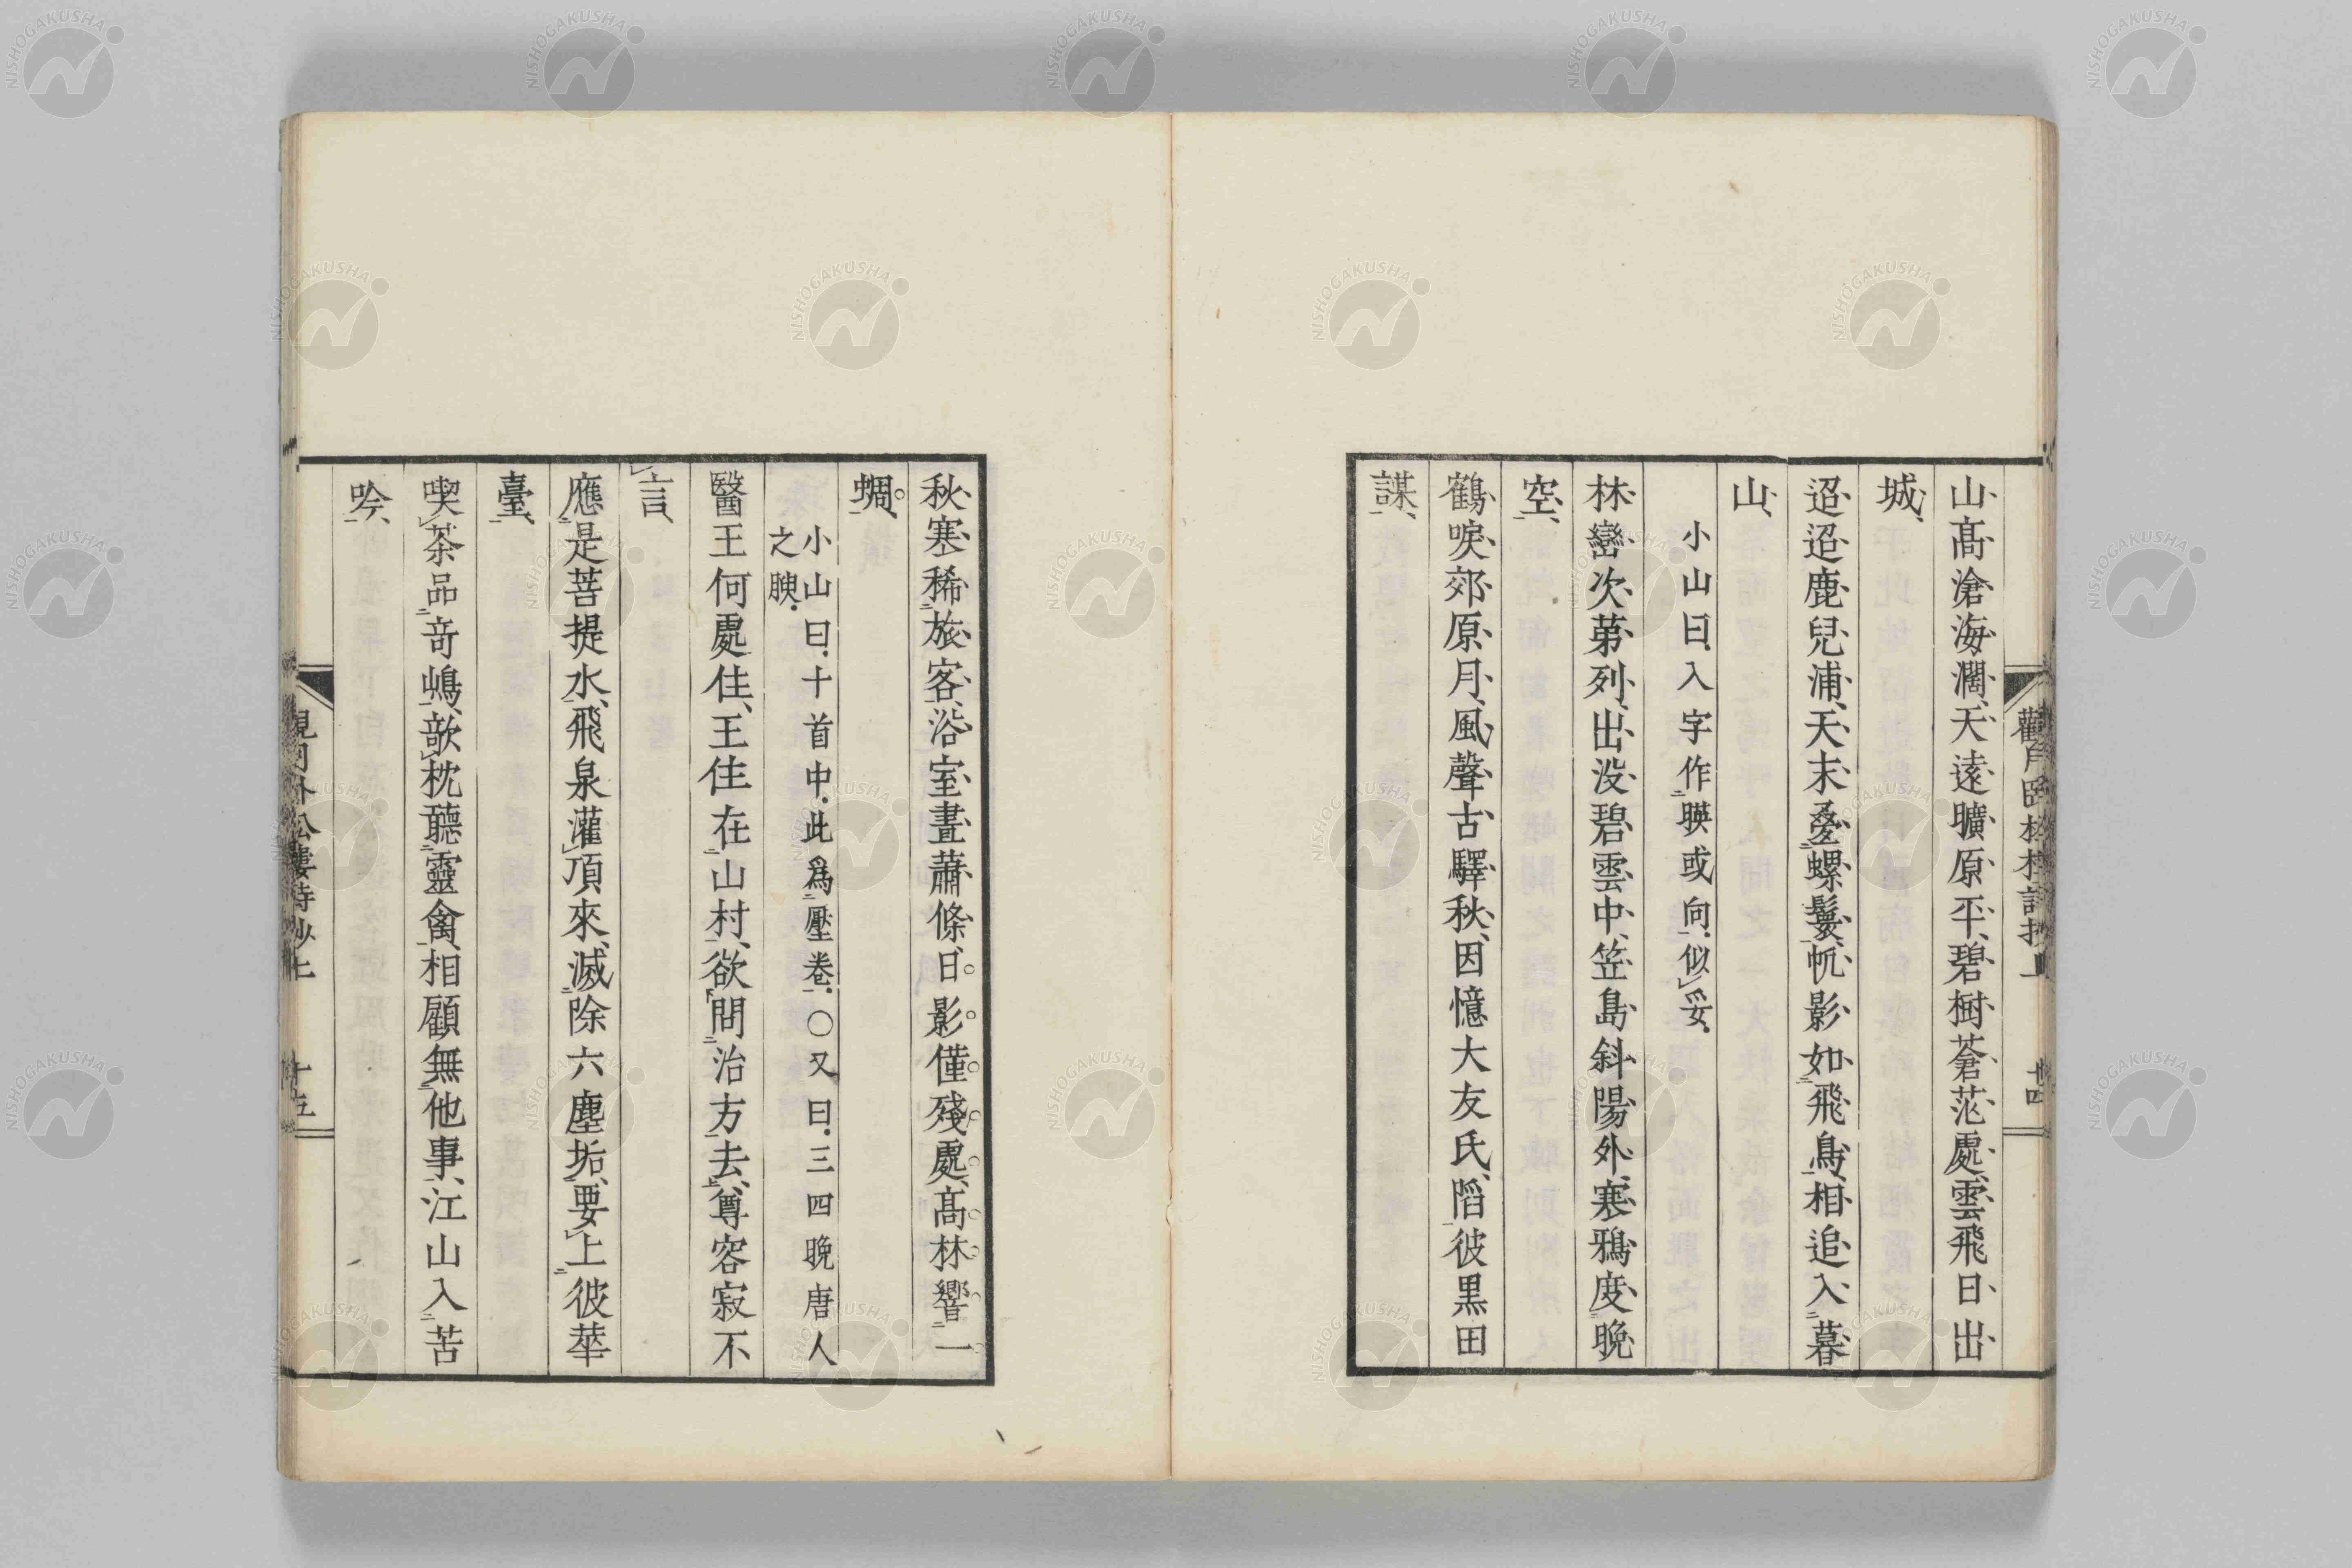 山高滄海濶天遠曠原平碧樹蒼茫處雲飛日出
城
迢迢鹿兒浦天末疊螺鬟帆影如飛鳥相追入暮
山
小山曰入字作映或向似妥
林巒次第列出没碧雲中笠島斜陽外寒鴉度晩
空
鶴唳郊原月風聲古驛秋因憶大友氏䧟彼黒田
謀
秋寒稀旅客浴室晝蕭條日影僅殘處高林響一
蜩
小山曰十首中此爲壓卷○又曰三四晩唐人
之腴
醫王何處住王住在山村欲問治方去尊容寂不
言
應是菩提水飛泉灌頂來滅除六塵垢要上彼華
臺
喫茶品奇嶋歆枕聽靈禽相顧無他事江山入苦
吟
NISHOGAKUSHA